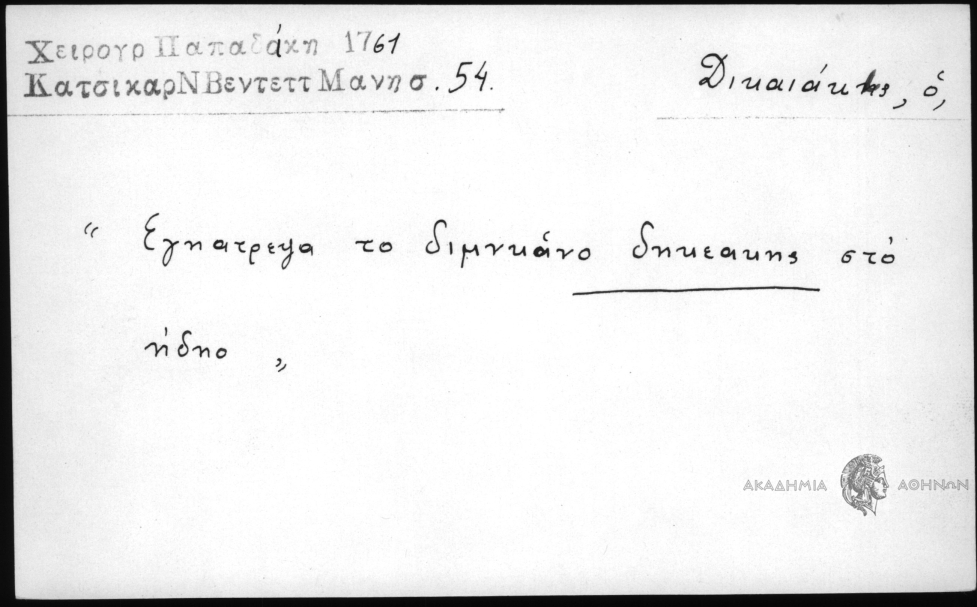 Χειρογρ Παπαδάκη 1761
Κατσικαρ Ν Βεντεττ Μανησ. 54.
Δικαιάκης, ὁ,
“ Εγηατρεψα το διμνκάνο δηκεακης στὸ
ἠδηο „
ΑΚΑΔΗΜΙΑ ΑΘΗΝΩΝ